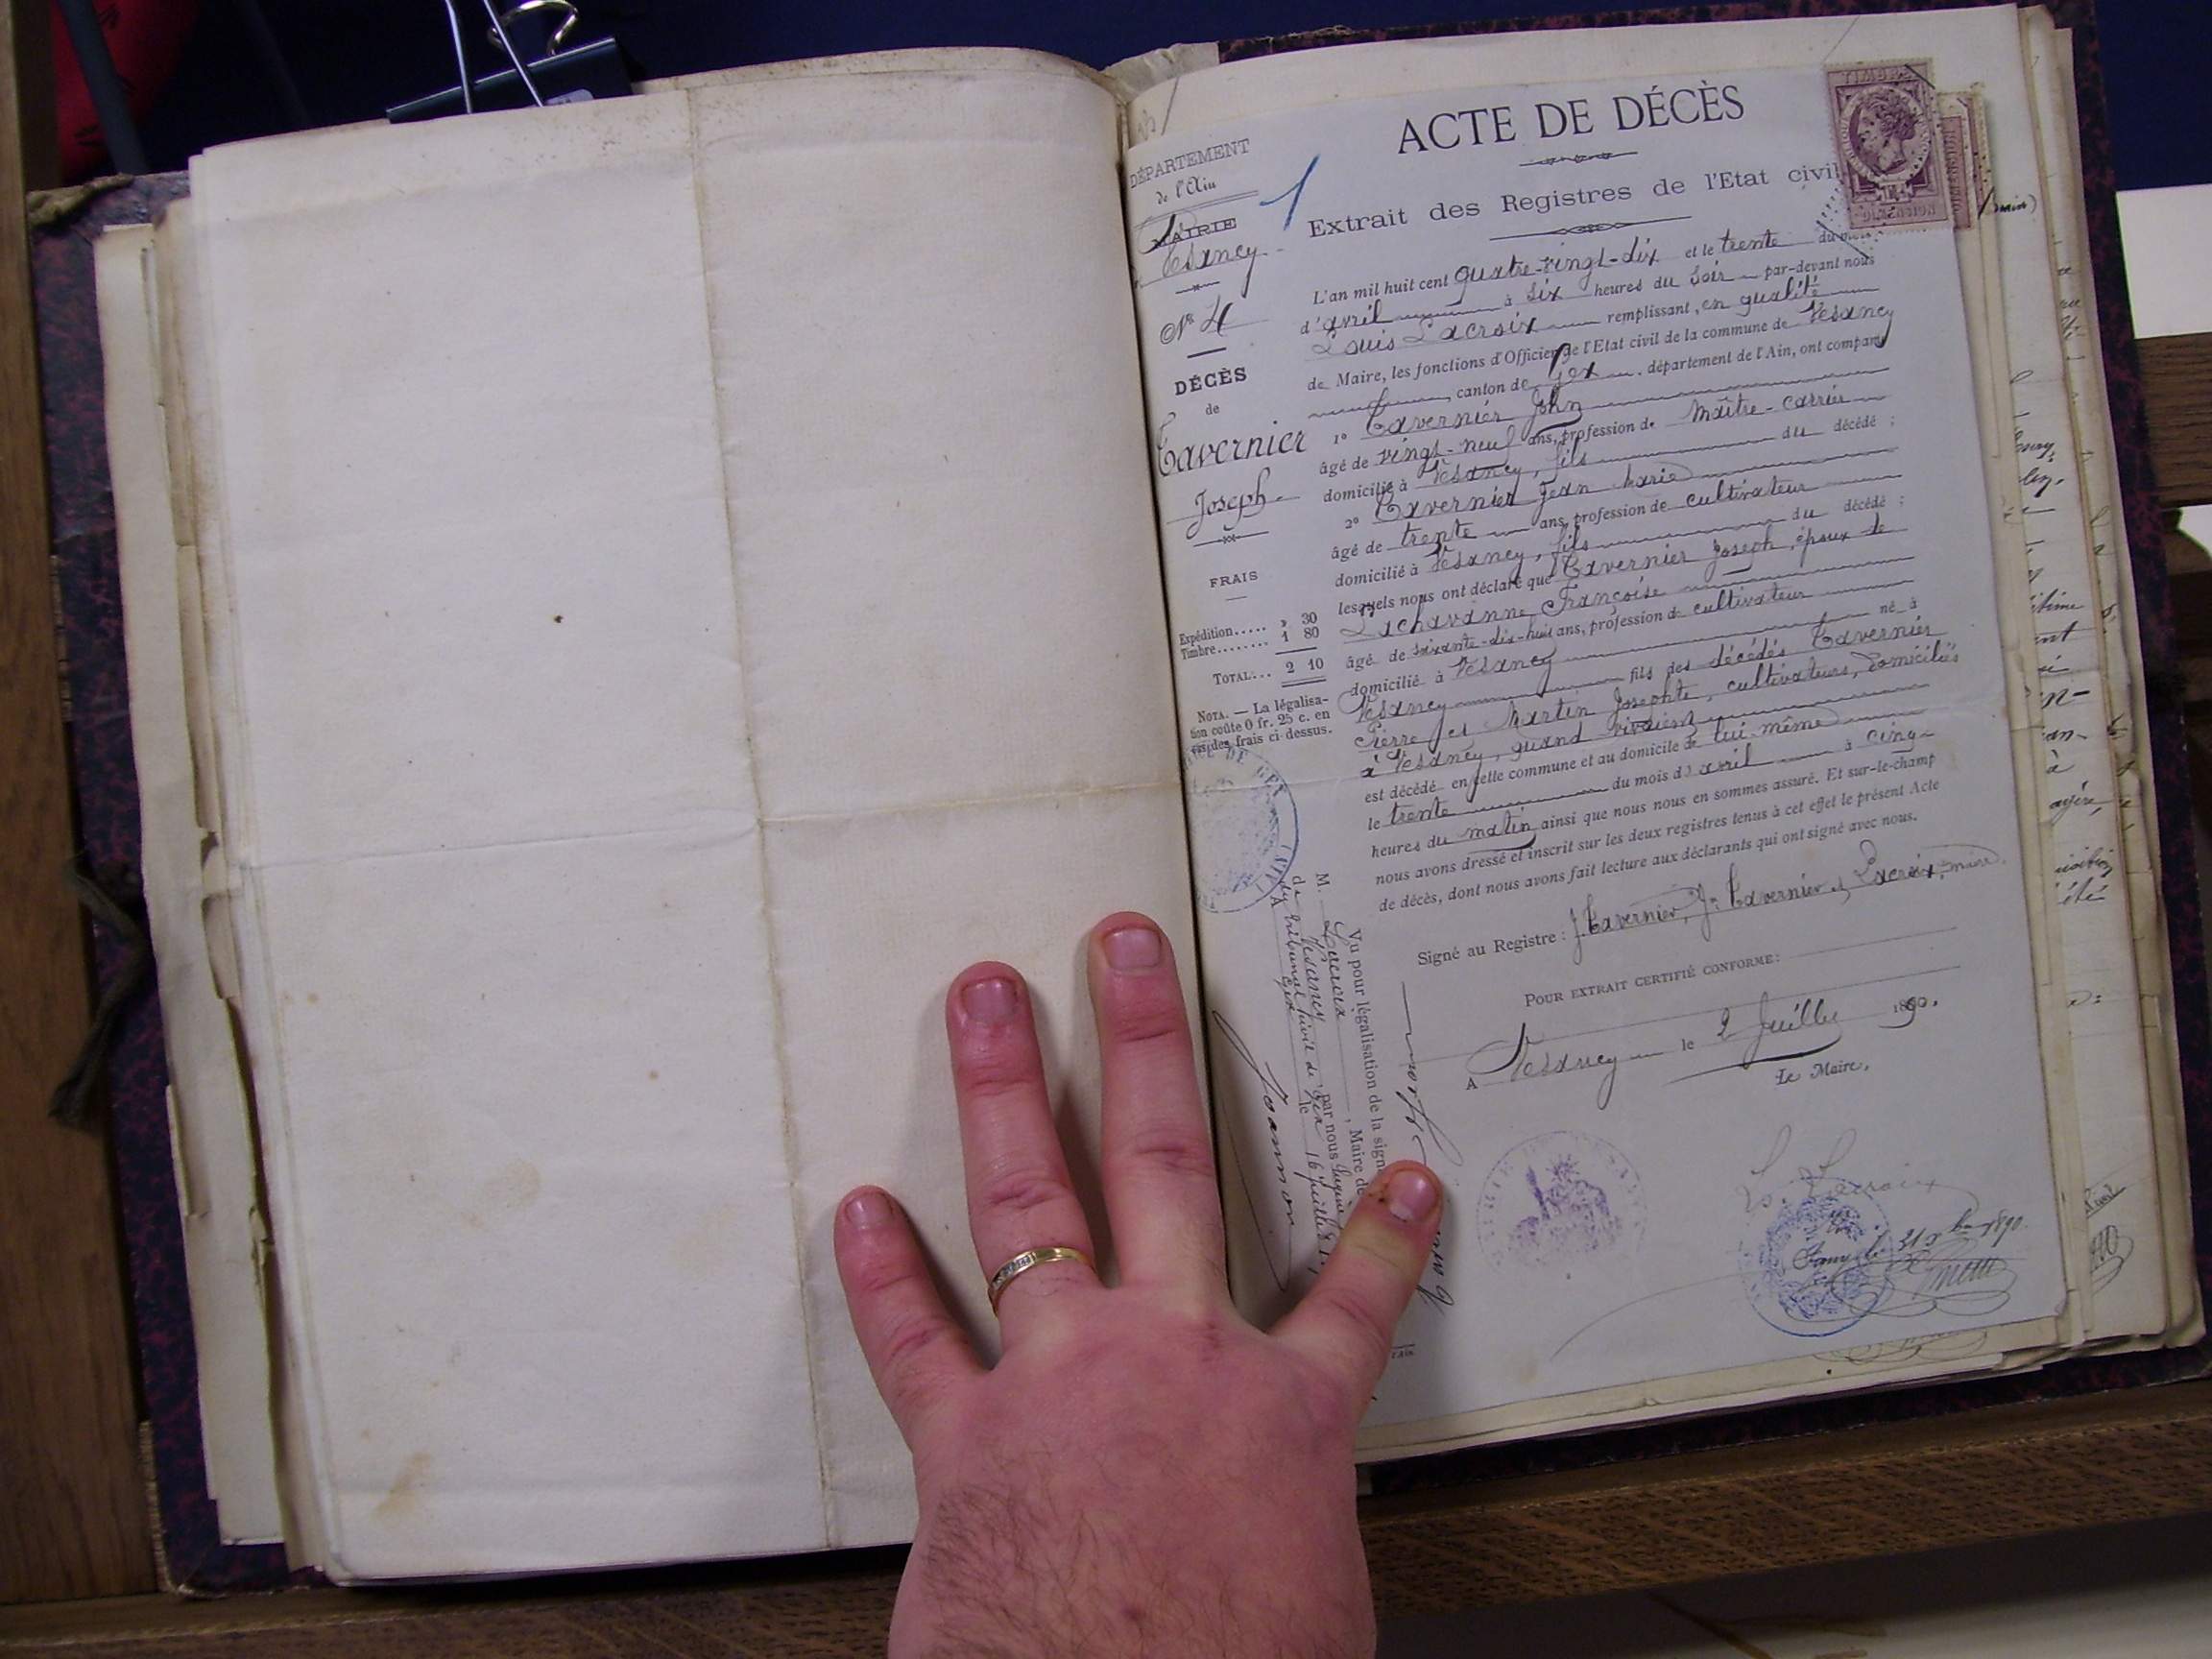 ACTE DE DÉCÈS
Extrait des Registres de l'Etat civil
TIMBRE
DÉPARTEMENT
de l'Ain
MAIRIE
Vesancy
N° 4
DÉCÈS
de
Tavernier
Joseph
FRAIS
Expédition..... » 30
Timbre........ 1 80
TOTAL... 2 10
NOTA. — La légalisa-
tion coûte 0 fr. 25 c. en
des frais ci-dessus.
L'an mil huit cent quatre-vingt-dix et le trente du mois
d'avril à six heures du soir par-devant nous
Louis Lacroix remplissant, en qualité
de Maire, les fonctions d'Officier de l'Etat civil de la commune de Vesancy
canton de Gex, département de l'Ain, ont comparu
1° Tavernier John
âgé de vingt-neuf ans, profession de Maître-carrier
domicilié à Vesancy, fils du décédé ;
2° Tavernier Jean Marie
âgé de trente ans, profession de cultivateur
domicilié à Vesancy, fils du décédé ;
lesquels nous ont déclaré que Tavernier Joseph, époux de
Lachavanne Françoise
âgé de soixante-dix-huit ans, profession de cultivateur
domicilié à Vesancy né à
Vesancy fils des décédés Tavernier
Pierre et Martin Josephte, cultivateurs, domiciliés
à Vesancy, quand vivaient
est décédé en cette commune et au domicile de lui-même
le trente du mois d'avril à cinq
heures du matin ainsi que nous nous en sommes assuré. Et sur-le-champ
nous avons dressé et inscrit sur les deux registres tenus à cet effet le présent Acte
de décès, dont nous avons fait lecture aux déclarants qui ont signé avec nous.
Signé au Registre : J Tavernier, Jn Tavernier, Lacroix, maire.
POUR EXTRAIT CERTIFIÉ CONFORME:
A Vesancy le 2 Juillet 1890.
Le Maire,
Ls. Lacroix
31 Xbre 1890
Vu pour légalisation de la sign
M. Lacroix, Maire de
Vesancy par nous
du tribunal civil de Gex
Gex le 16 juillet
Joannon